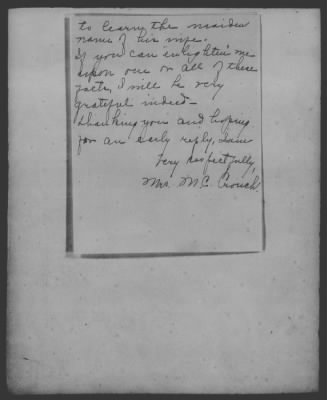 to learn the maiden
name of his wife.
If you can enlighten me
upon one or all of these
facts, I will be very
grateful indeed -
Thanking you and hoping
for an early reply, I am
Very respectfully,
Mrs. M. C. Crouch